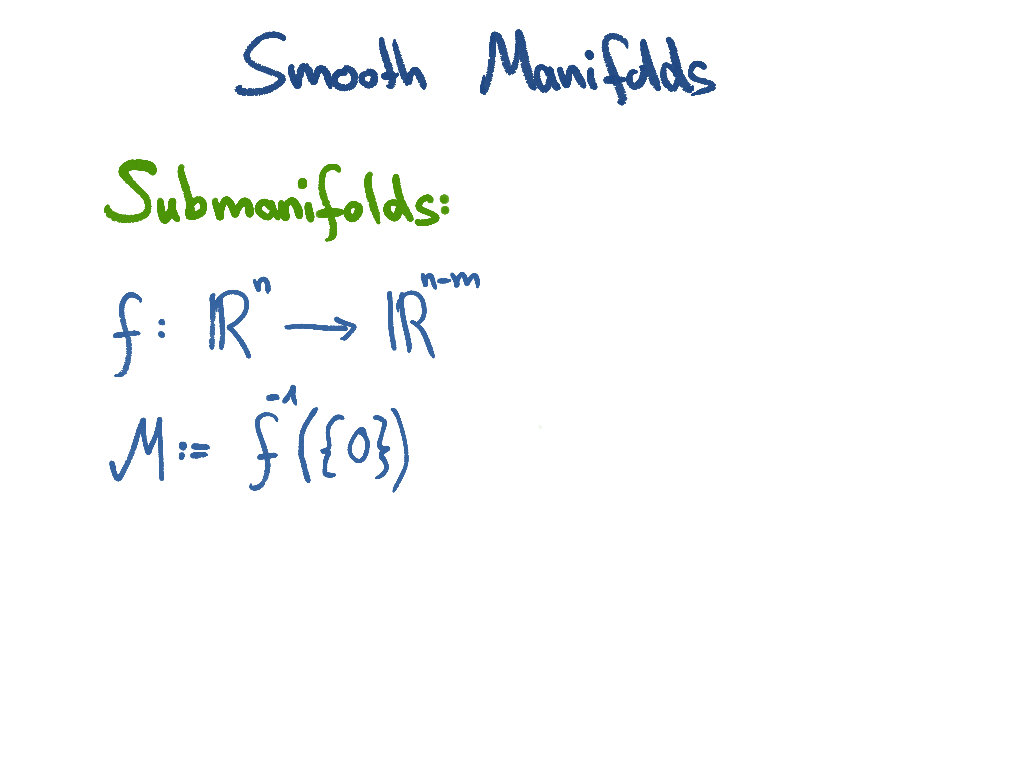 Smooth Manifolds
Submanifolds:
f: ℝⁿ ⟶ ℝⁿ⁻ᵐ
M := f⁻¹({0})